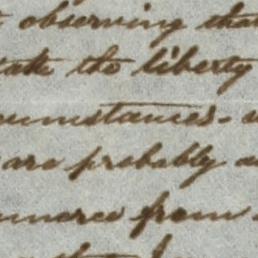 observing that
take the liberty
cumstances.
are probably
merce from